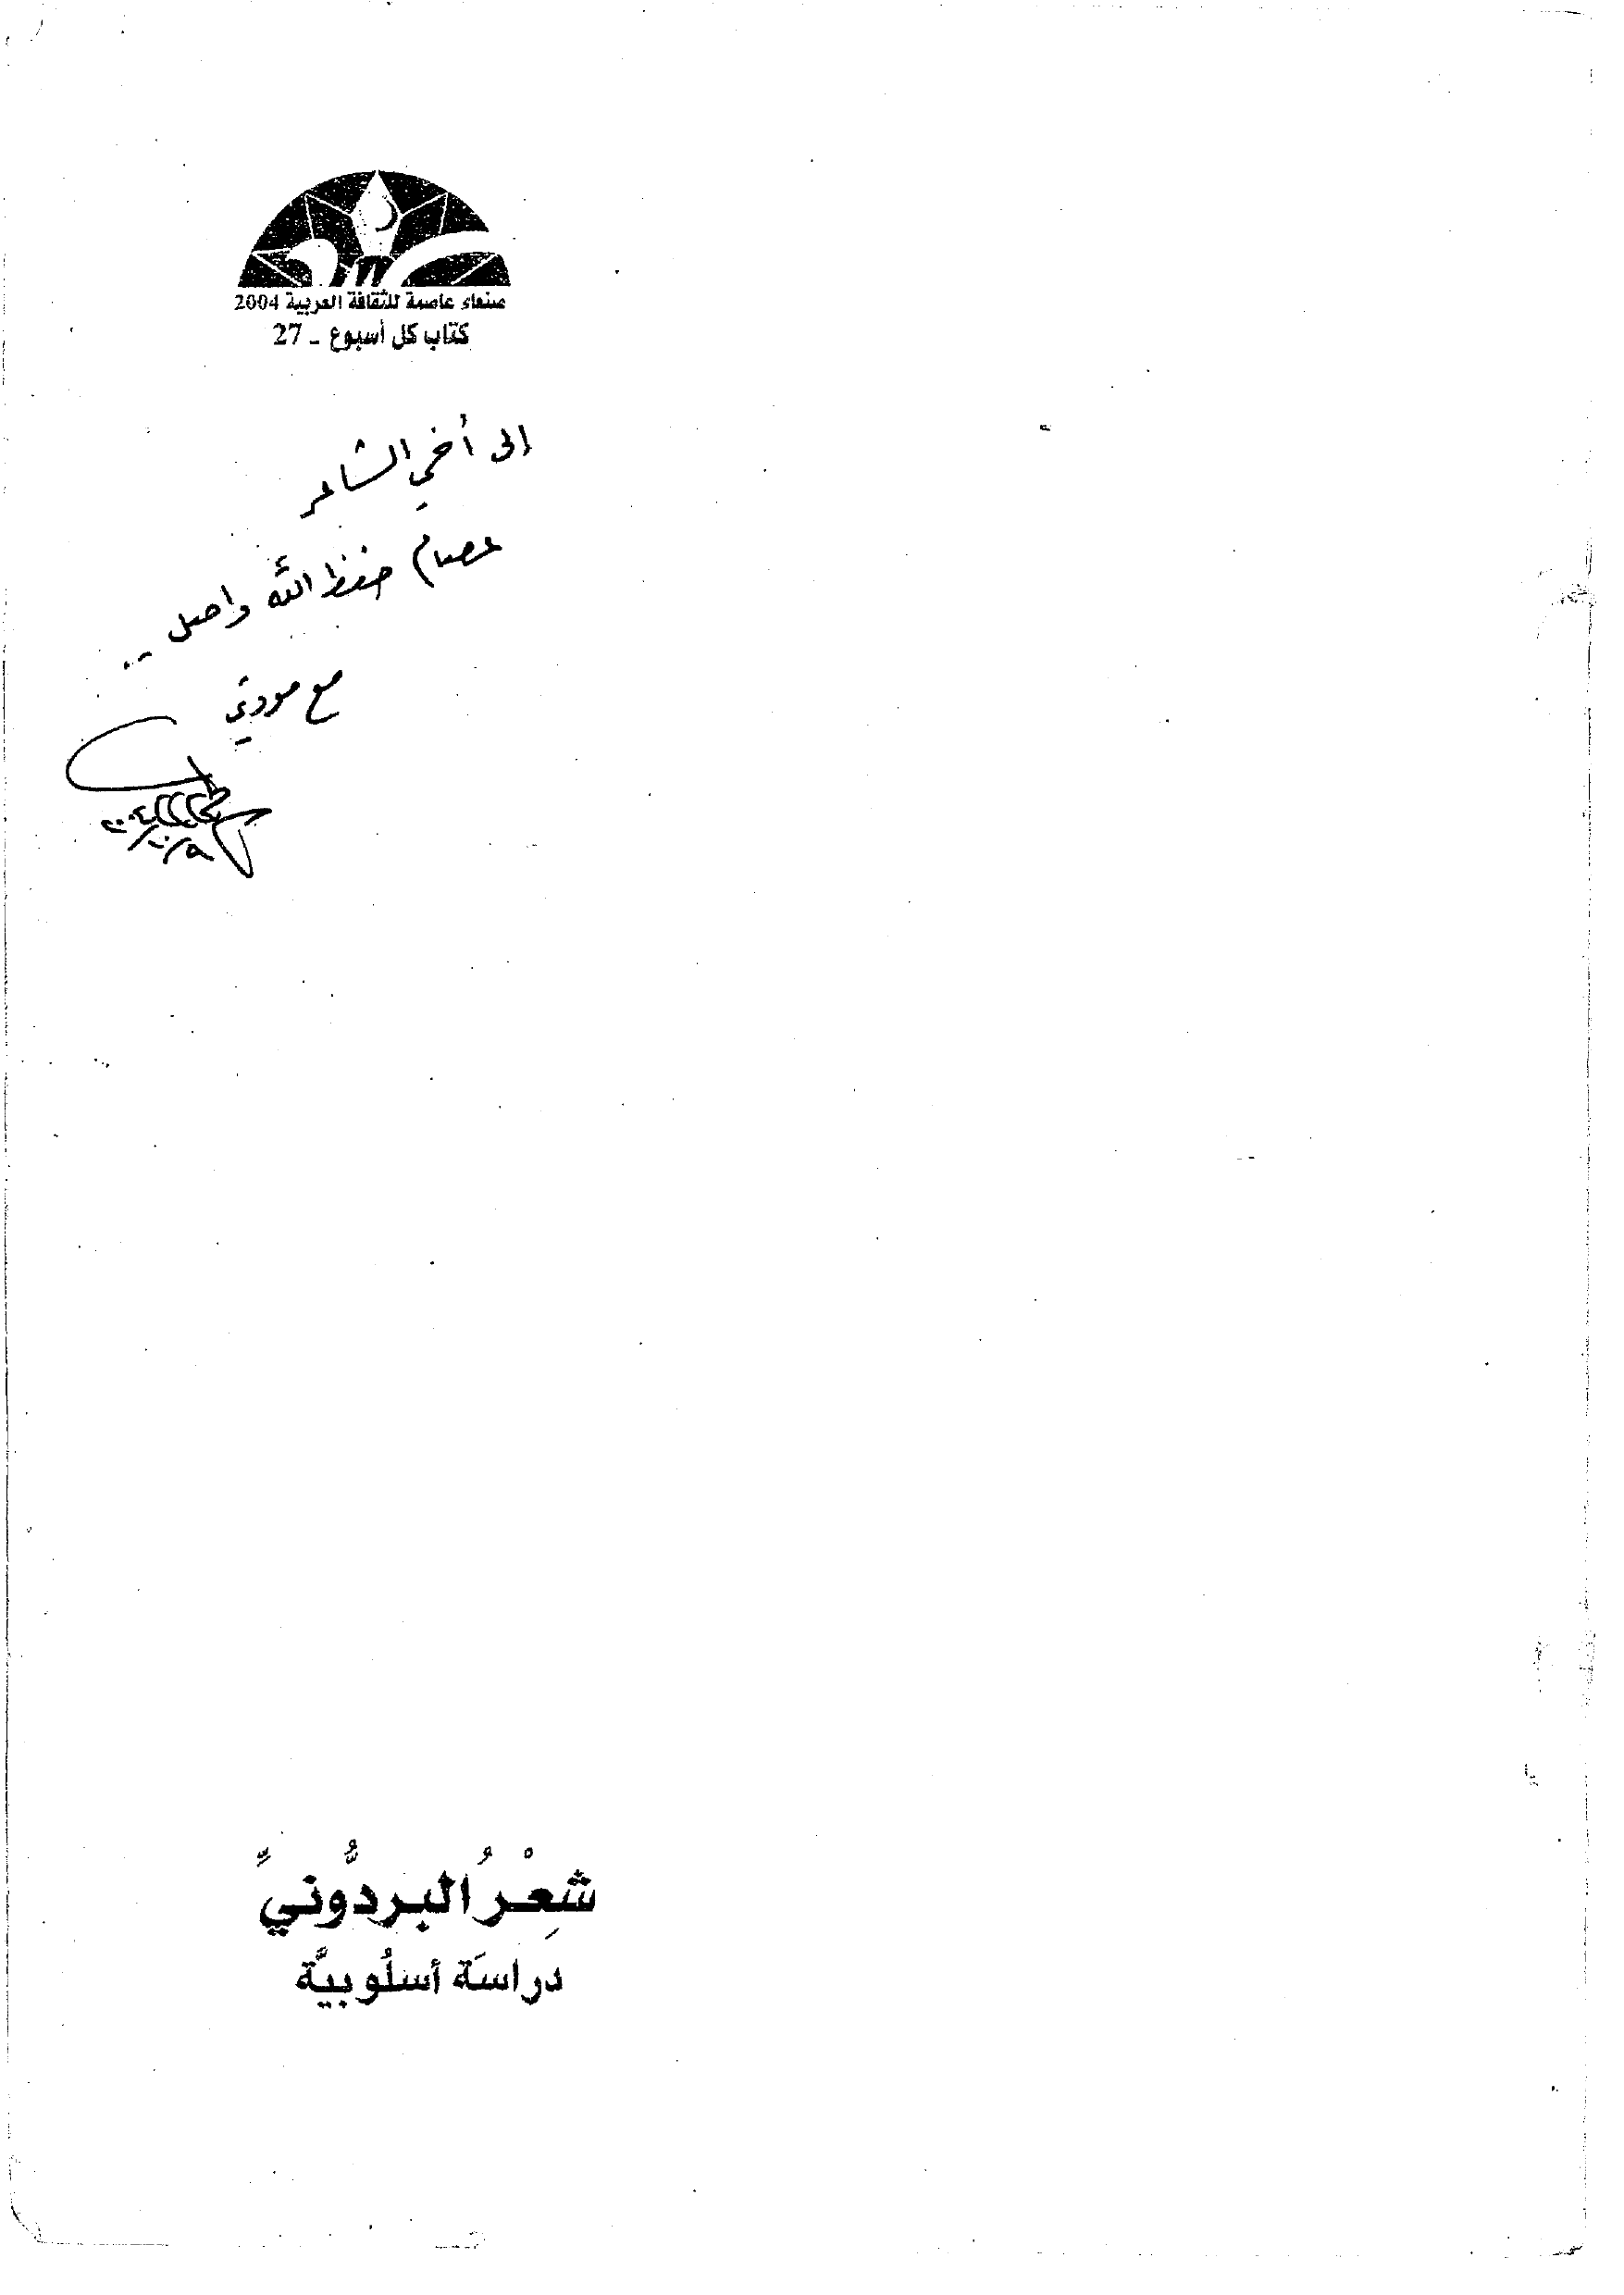 صنعاء عاصمة للثقافة العربية 2004
كتاب كل أسبوع - 27
إلى أخي الشاعر
عصام حفظ الله واصل ..
مع مودتي
شِعْرُ البردُّونيِّ
دراسَة أسلُوبيَّة